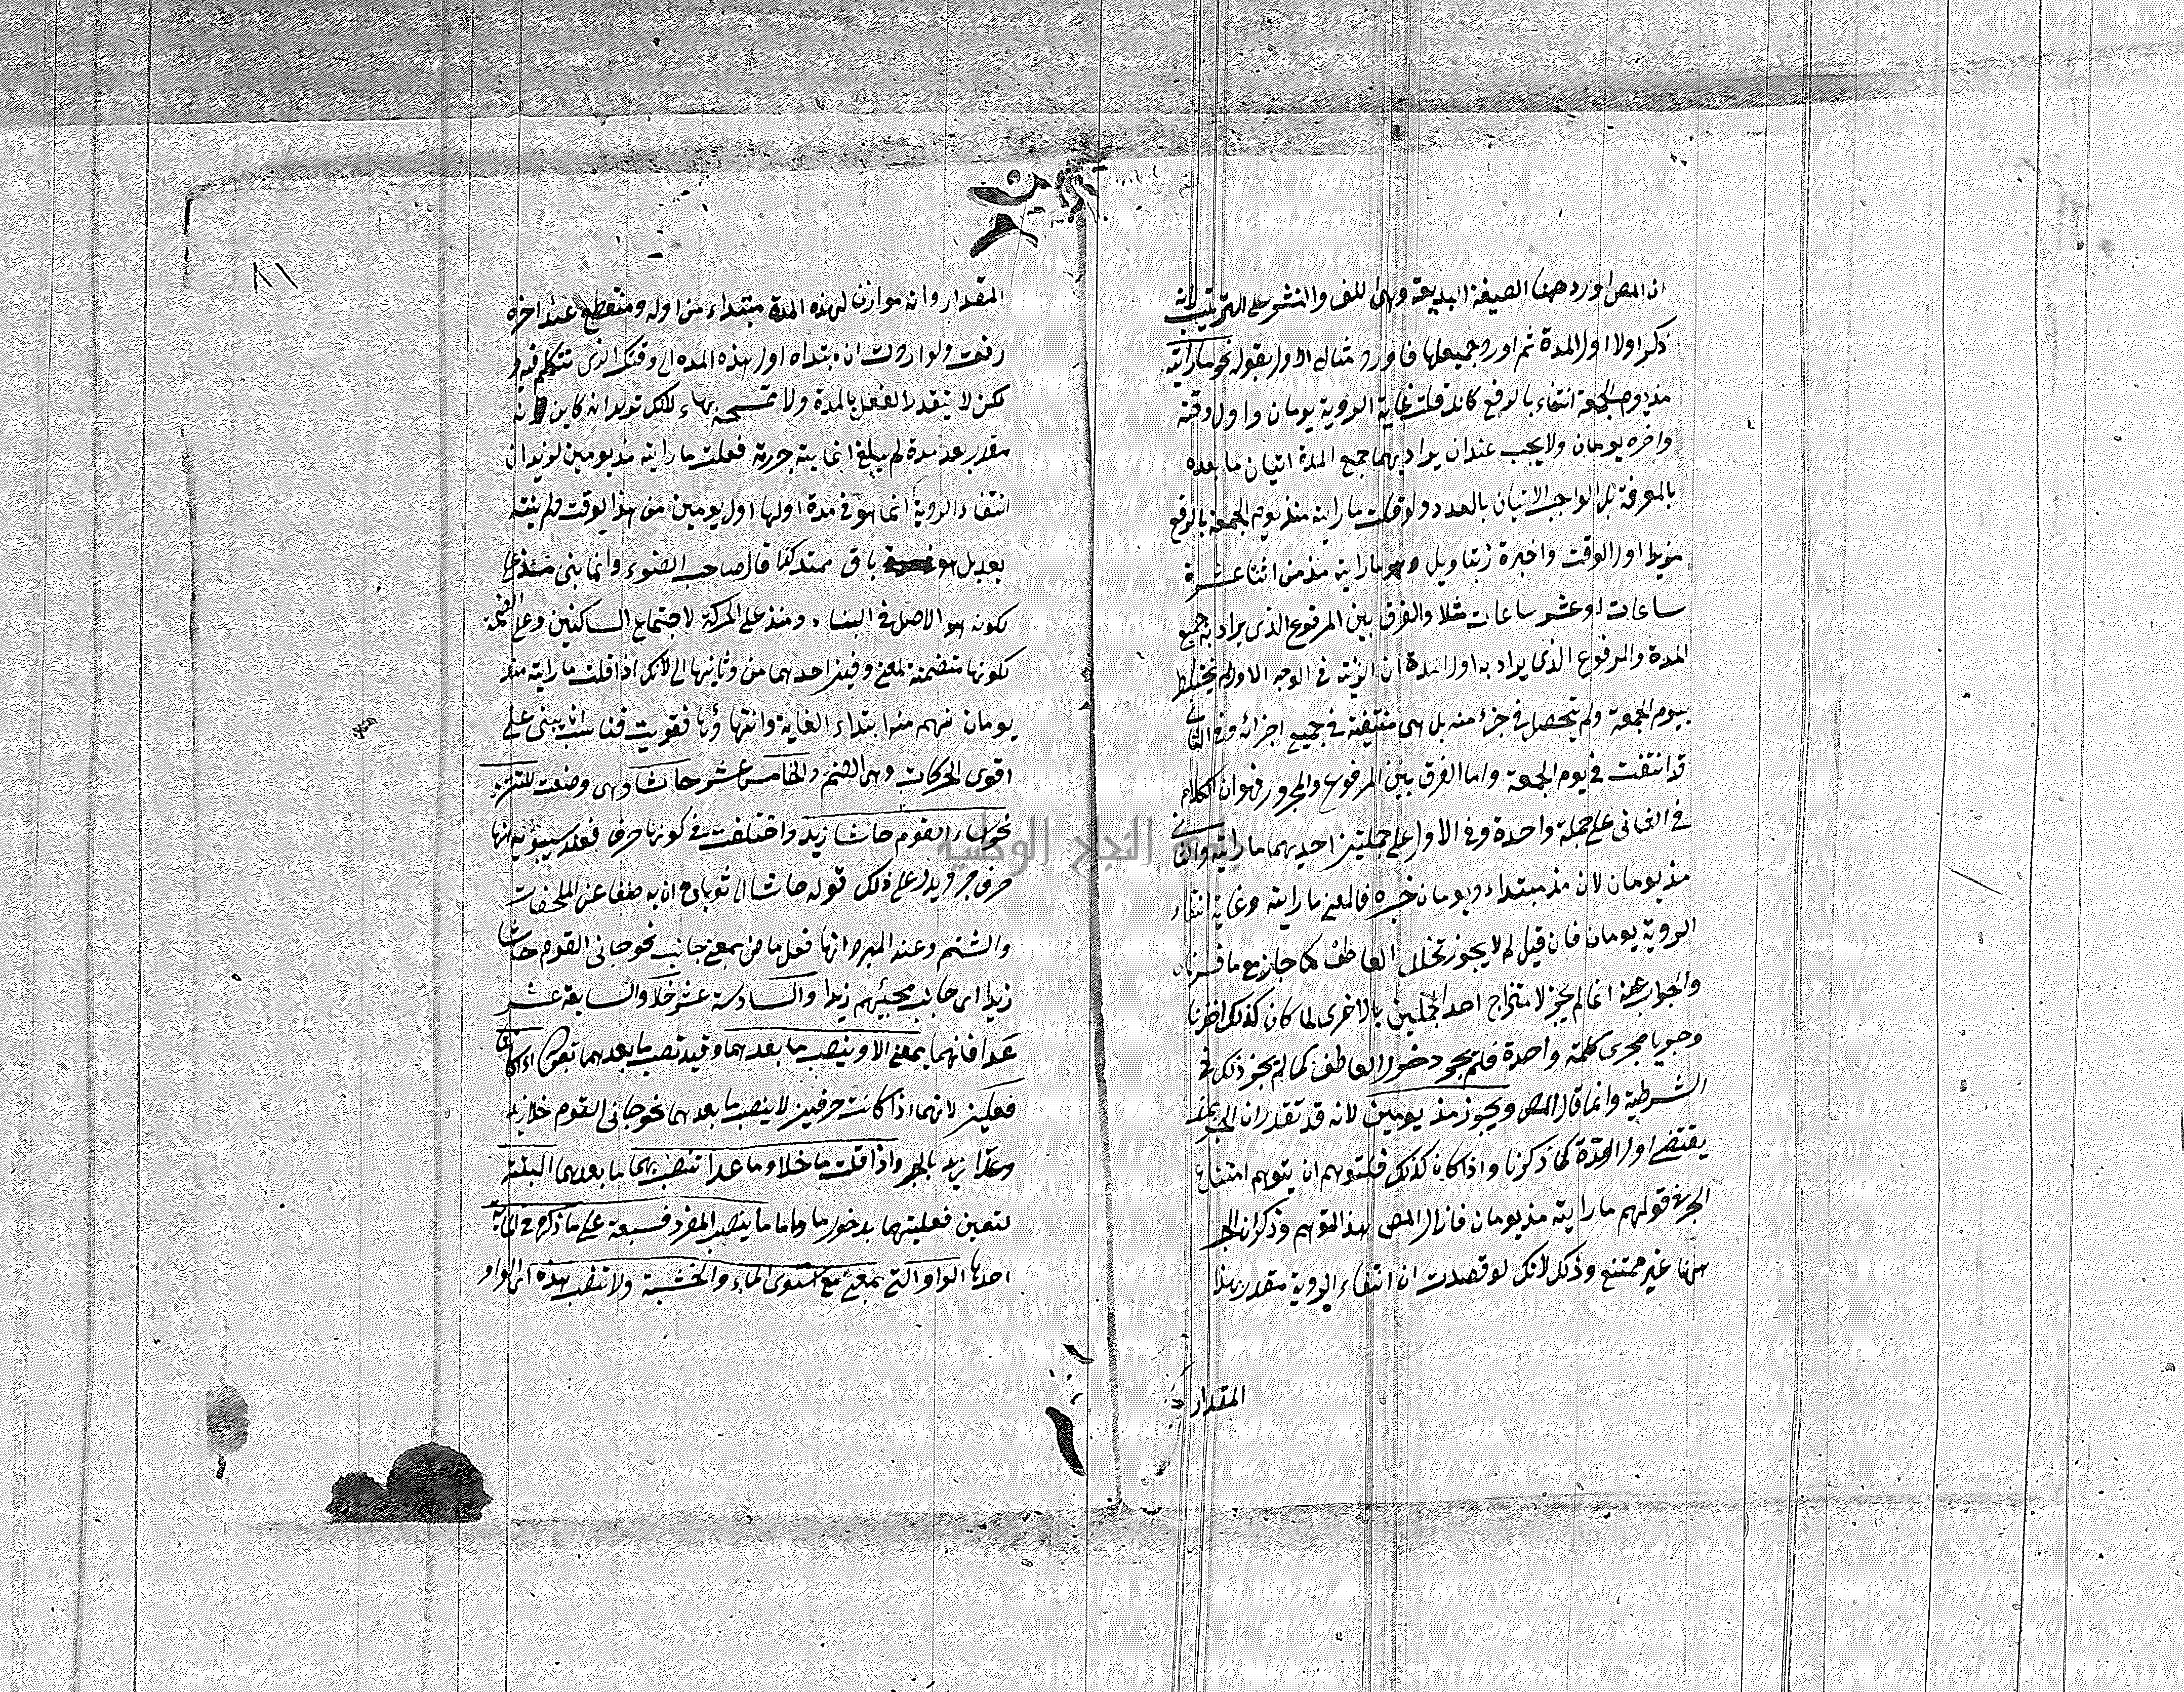 ان المص اورد هنا الصيغة البديعة وهى اللف والنشر على الترتيب لانه
ذكر اولا اول المدة ثم اورد جميعها فاورد مثال الاول بقوله نحو ما رأيته
مذ يوم الجمعة انتفاء بالرفع كانك قلت غاية الروية يومان واول وقته
واخره يومان ولا يجب عند ان يراد بهما جميع المدة اتيان ما بعده
بالمعرفة بل الواجب الاتيان بالعدد ولو قلت ما رايته منذ يوم الجمعة بالرفع
مريدا اول الوقت واخبرة بتاويل وهو ما رايته مذ من اثنا عشرة
ساعات او عشر ساعات مثلا والفرق بين المرفوع الذى يراد به جميع
المدة والمرفوع الذى يراد به اول المدة ان الروية فى الوجه الاول لم يختلط
بيوم الجمعة ولم يتحصل فى جزء منه بل هى منتفية فى جميع اجزائه وفى الثانى
قد انتفت فى يوم الجمعة واما الفرق بين المرفوع والمجرور فهو ان الكلام
فى الثانى على جملة واحدة وفى الاول على جملتين احديهما ما رايته والثانى
مذ يومان لان مذ مبتداء ويومان خبره فالمعنى ما رايته وغاية انتفاء
الروية يومان فان قيل لم لا يجوز تخلل العاطف كما جاز مع ما فسرناه
والجواب عنه انما لم يجز لامتزاج احد الجملتين بالاخرى لما كان كذلك اخترنا
وجوبا مجرى كلمة واحدة فلم يجز دخول العاطف كما لم يجز ذلك فى
الشرطية وانما قال المص ويجوز مذ يومين لانه قد تقدر ان الجر بمذ
يقتضى اول المدة كما ذكرنا واذا كان كذلك فلمتوهم ان يتوهم امتناع
الجر فى قولهم ما رايته مذ يومان فازال المص هذا التوهم وذكر ان الجر
ههنا غير ممتنع وذلك لانك لو قصدت ان انتفاء الروية مقدر بهذا
المقدار
٨١
المقدار وانه موازن لهذه المدة مبتداء من اوله ومنقطع عند اخره
رفعت ولو اردت ان ابتداه اول هذه المده الى وقتك الذى تتكلم فيه و
لكن لا يتقدر الفعل بالمدة ولا بهاء لانك تريد انه كاين
مقدر بعد مدة لم يبلغ انهايته جررته فقلت ما رايته مذ يومين لو تريد ان
انتفاء الروية انما هو فى مدة اولها اول يومين من هذا الوقت ولم ينته
بعد بل هو باق ممتد كذا قال صاحب الضوء وانما بنى منذ على
لكونه هو الاصل فى البناء ومنذ على الحركة لاجتماع الساكنين وعلى الضمة
لكونها متضمنة لمعنى وفيين احدهما من وثانيها الى لانك اذا قلت ما رايته منذ
يومان فهم منه ابتداء الغاية وانتهاؤها فقويت فناسب ان يبنى على
اقوى الحركات وهى الضم والخامس عشر حاشا وهى وضعت للتنزيه
نحو اساء القوم حاشا زيد واختلفت فى كونها حرف فعند سيبويه انها
حرف جر ويدل على ذلك قوله حاشا ابى ثوبان ان به ضغا عن الملحات
والشتم وعند المبرد انها فعل ماض بمعنى جانب نحو جانى القوم حاشا
زيدا اى جانب مجيئهم زيدا والسادسة عشر خلا والسابعة عشر
عدا فانهما بمعنى الا وينصب ما بعدهما وقيد نصب ما بعدهما بقوله اذا كانتا
فعلين لانهما اذا كانت حرفين لا ينصب ما بعدهما نحو جانى القوم خلا زيد
وعدا زيد بالجر واذا قلت ما خلا وما عدا تنصب بهما ما بعدهما البتة
لتعين فعليتهما بدخول ما واما ما ينصب المفرد فسبعة على ما ذكره فى المائة
احدها الواو التى بمعنى مع استوى الماء والخشبة ولا تنصب هذه اى الواو
جامعة النجاح الوطنية